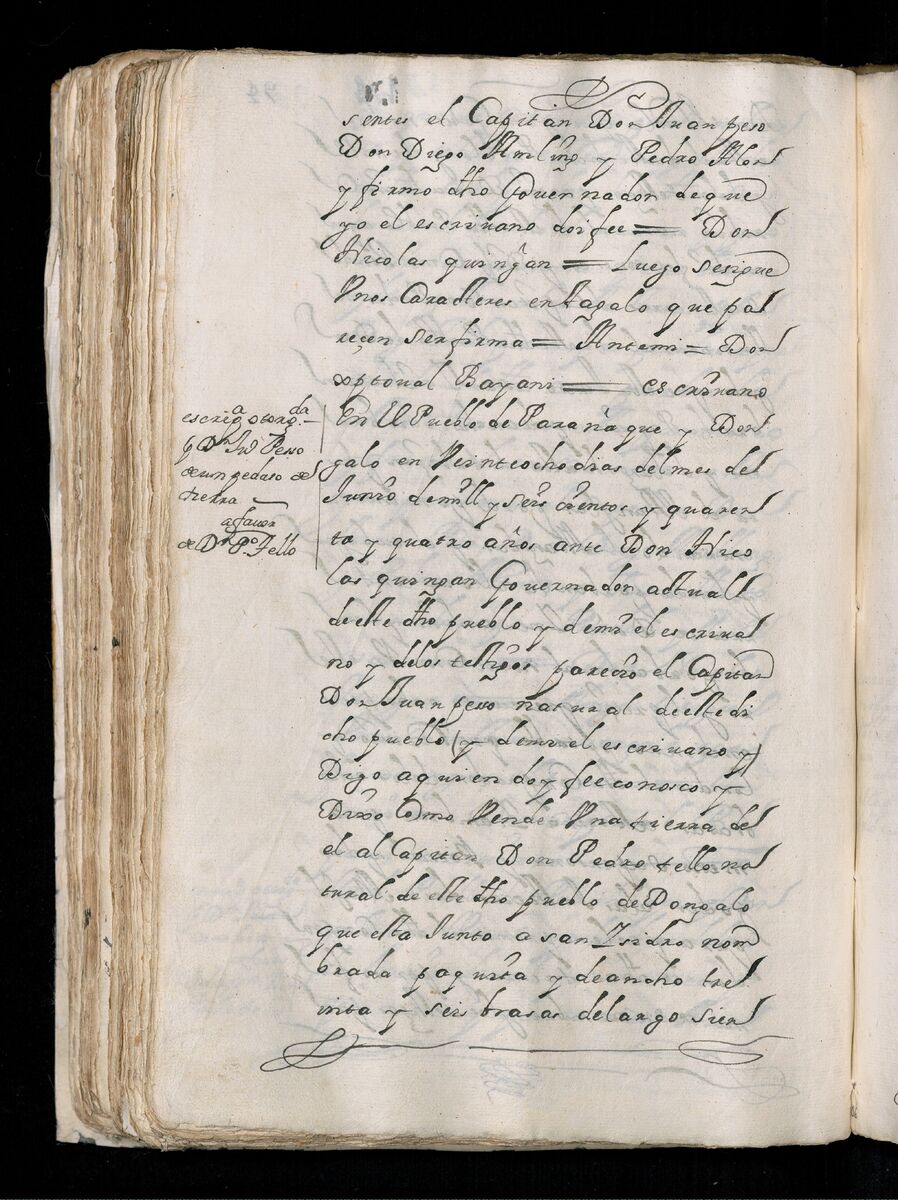 sentes el Capitan Don Juan peso
Don Diego Amling y Pedro Alon
y firmo dho Governador de que
yo el escrivano doi fee = Don
Nicolas quingan = Luego se sigue
Vnos Caracteres en tagalo que pa
reçen ser firma = Antemi = Don
xptoual Bayani = escrivano
En El Pueblo de Parañaque y Don
galo en Veinteocho dias del mes del
Junio de mill y seis cientos y quaren
ta y quatro años ante Don Nico
las quingan Governador actuall
de este dho pueblo y de mi el escriua
no y de los testigos parecio el Capitan
Don Juan peso natural de este di
cho pueblo (y de mi el escriuano y)
Digo a quien doy fee conosco y
Dixo Como Vende Vna tierra del
el al Capitan Don Pedro tello na
tural de este dho pueblo de Dongalo
que esta Junto a san Isidro nom
brada paquita y de ancho tre
inta y seis brasas de largo sien
escria otorgda
p Dn Juo Pesso
de un pedaso de
tierra
a favor
de Dn Po Tello